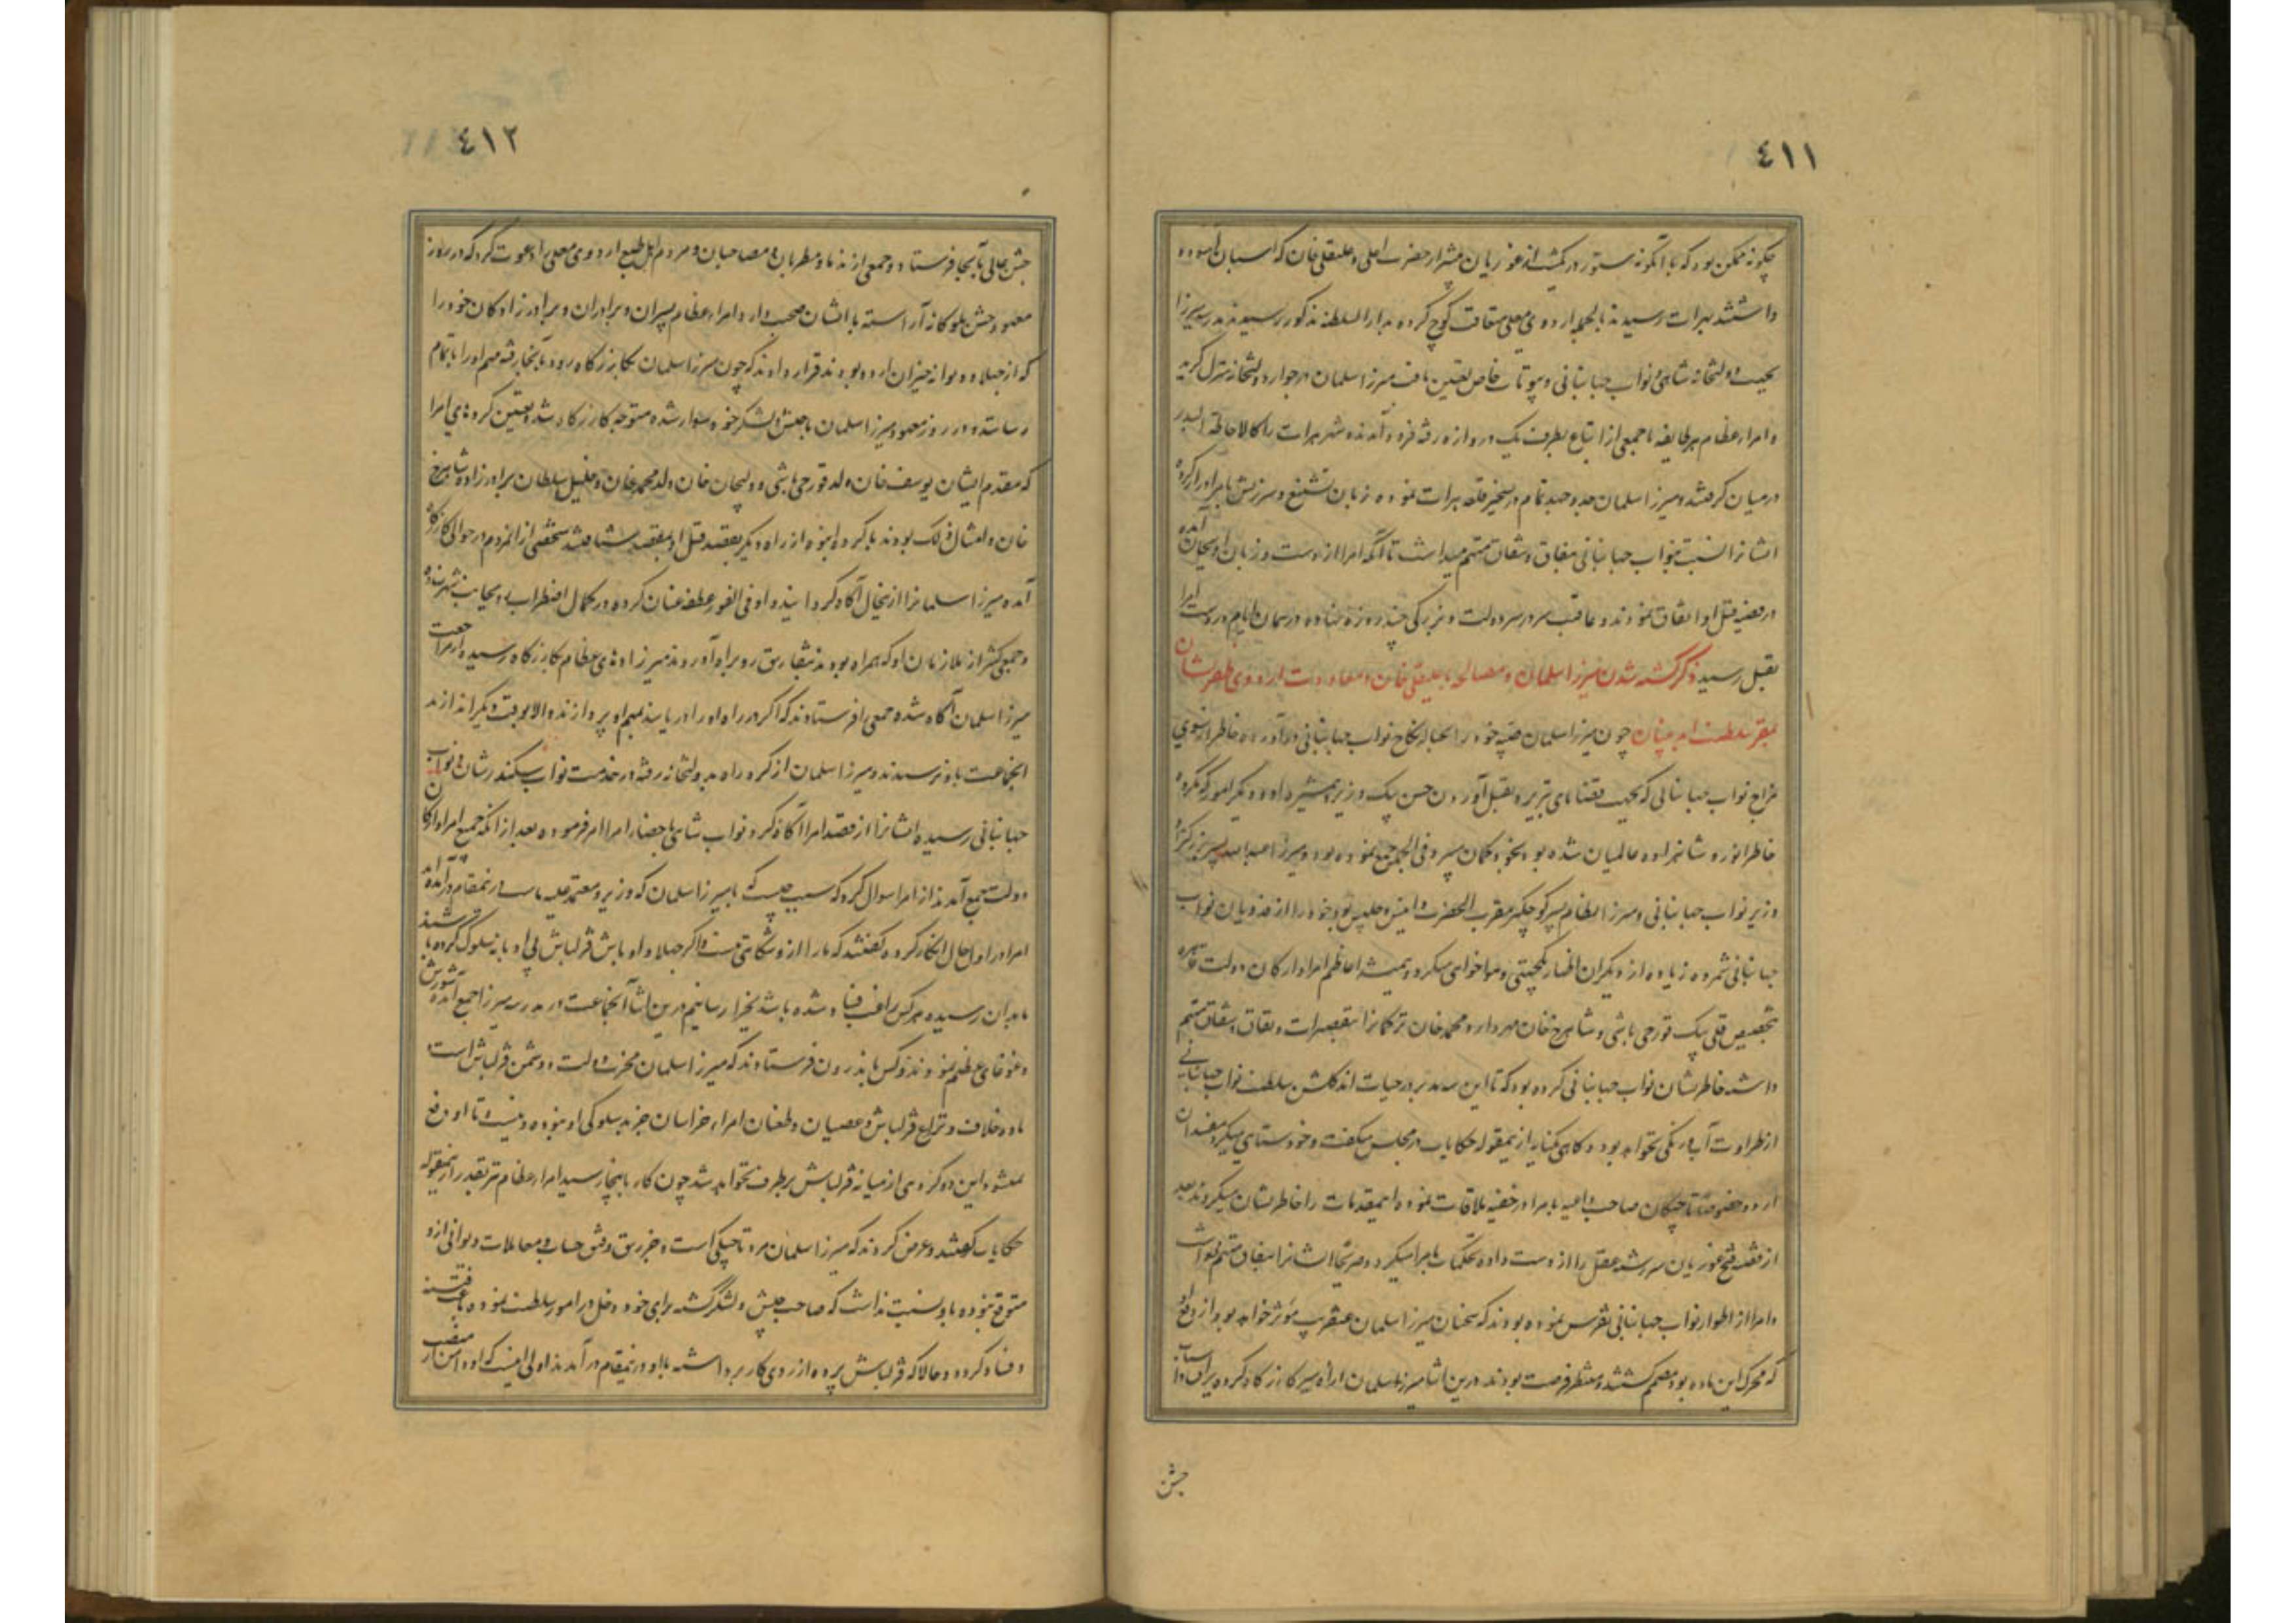 ٤١١
چگونه ممکن بود که با آنگونه ستور در یکشب از غوریان پیشتر از حضرت اعلی و علیقلی خان که اسبان آسوده
داشتند بهرات رسیدند بالجمله اردوی معلی متعاقب کوچ کرده بدار السلطنه مذکور رسیدند مدرسه میرزا
بجهت دولتخانه شاهی و نواب جهانبانی و بیوتات خاص تعیین یافت میرزا سلمان در جوار دولتخانه منزل گزید
و امراء عظام هر طایفه با جمعی از اتباع بطرف یک دروازه رفته فرود آمدند شهر هرات را کالاحاطة البدر
در میان گرفتند و میرزا سلمان جد و جهد تمام در تسخیر قلعه هرات نموده زبان تشنیع و سرزنش بامرا دراز کرده
ایشانرا نسبت بنواب جهانبانی بنفاق و شقاق متهم میداشت تا آنکه امرا از دست و زبان او بجان آمده
در قضیه قتل او اتفاق نمودند و عاقبت سر در سر دولت و بزرگی چند روزه نهاده در همان ایام بر دست امرا
بقتل رسید ذکر کشته شدن میرزا سلمان و مصالحه با علیقلی خان و معاودت اردوی ظفر نشان
بمقر سلطنت ابد بنیان چون میرزا سلمان صبیه خود را بحباله نکاح نواب جهانبانی در آورده خاطر از شوری
مزاج نواب جهانبانی که بجهت قضایای تبریز و بقتل آوردن حسن بیک وزیر همشیره زاده و دیگر امور که مکروه
خاطر انور و شاهزاده عالمیان شده بود بخود گمان میبرد فی الجمله جمع نموده بود و میرزا عبدالله پسر بزرگتر او
وزیر نواب جهانبانی و میرزا نظام پسر کوچکتر مقرب الحضرت و انیس و جلیس بود خود را از فدویان نواب
جهانبانی شمرده زیاده از دیگران اظهار یکجهتی و هواخواهی میکرد و همیشه اعاظم امرا و ارکان دولت قاهره
بتخصیص قلی بیک قورچی باشی و شاهرخ خان مهردار و محمد خان ترکمانرا بتقصیرات و نفاق و شقاق متهم
داشته خاطر نشان نواب جهانبانی کرده بود که تا این سه مدبر در حیات اند گلشن سلطنت نواب جهانبانی
از طراوت آب و رنگی نخواهد بود و گاهی بکنایه ازینمقوله حکایات در مجلس میگفت و خودستایی میکرد مفسدان
اردو خصوصا تاجیکان صاحب داعیه بامرا در خفیه ملاقات نموده اینمقدمات را خاطر نشان میکردند بعد
از قضیه فتح غوریان سررشته عقل را از دست داده تحکمات بامرا میکرد و صریحا ایشانرا بنفاق متهم میداشت
و امرا از اطوار نواب جهانبانی تفرس نموده بودند که سخنان میرزا سلمان عنقریب موثر خواهد بود از دفع او
که محرک این ماده بود مصمم گشتند و منتظر فرصت بودند درین اثنا میرزا سلمان اراده سیر کازرگاه کرده یراق و اسباب
جشن
٤١٢
جشن عالی بآنجا فرستاد و جمعی از ندما و مطربان و مصاحبان و مردم اهل طبع اردوی معلی را دعوت کرد که در روز
معهود جشن ملوکانه آراسته با ایشان صحبت دارد امراء عظام پسران و برادران و برادرزادگان خود را
که از جهلا و دیوانه خیزان اردو بودند قرار دادند که چون میرزا سلمان بکازرگاه رود بآنجا رفته مهم او را باتمام
رسانند و در روز معهود میرزا سلمان با جیش و لشکر خود سوار شده متوجه کازرگاه شد و تعیین کرده‌های امرا
که مقدم ایشان یوسف خان ولد قورچی باشی و ولیجان خان ولد محمد خان و خلیل سلطان برادرزاده شاهرخ
خان و امثال ذلک بودند با گروه انبوه از راه دیگر بقصد قتل او بمقصد شتافتند شخصی از آنمردم در حوالی کازرگاه
آمده میرزا سلمانرا ازینحال آگاه گردانید و او فی الفور عطف عنان کرده در کمال اضطراب رو بجانب شهر نهاده
و جمعی کثیر از ملازمان او که همراه بودند بتفاریق رو براه آوردند میرزاده‌های عظام بکازرگاه رسیده از مراجعت
میرزا سلمان آگاه شده جمعی فرستادند که اگر در راه او را دریابند بمهم او پردازند و الا بوقت دیگر اندازند
آنجماعت باو نرسیدند و میرزا سلمان از گرد راه بدولتخانه رفته در خدمت نواب سکندر شان و نواب
جهانبانی رسیده ایشانرا از قصد امرا آگاه کرد نواب شاهی باحضار امرا امر فرموده بعد از آنکه جمیع امرا و ارکان
دولت جمع آمدند از امرا سوال کرد که سبب چیست که با میرزا سلمان که وزیر و معتمد علیه ماست در اینمقام در آمده‌اند
امرا در اول حال انکار کرده گفتند که ما را ازو شکایتی نیست و اگر جهلا و اوباش قزلباش بی او بانه سلوک کرده باشند
ما بدان رسیده هر کس راغب فساد شده باشد بجزا رسانیم درین اثنا آنجماعت در مدرسه میرزا جمع آمده شورش
و غوغای عظیم نمودند و کس باندرون فرستادند که میرزا سلمان مخرب دولت و دشمن قزلباش است و
ماده خلاف و نزاع قزلباش و عصیان و طغیان امراء خراسان جز بد سلوکی او نبوده و نیست تا او دفع
نمیشود این دو گروهی از میانه قزلباش برطرف نخواهد شد چون کار باینجا رسید امراء عظام نیز بقدر ازینمقوله
حکایات گفتند و عرض کردند که میرزا سلمان مرد تاجیکی است و جز رتق و فتق حساب و معاملات دیوانی ازو
متوقع نبوده باو نسبت نداشت که صاحب جیش و لشکر گشته برای خود دخل در امور سلطنت نموده باعث فتنه
و فساد گردد و حالا که قزلباش پرده از روی کار برداشته با او در اینمقام در آمدند اولی اینست که او دامن از منصب